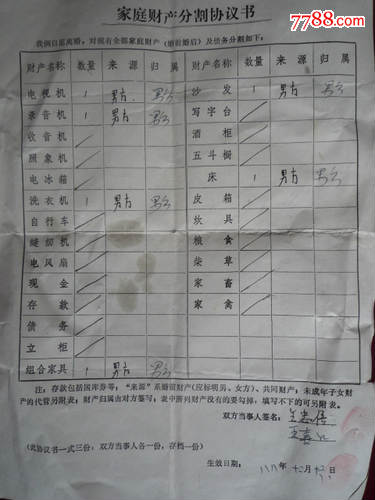 7788.com
家庭财产分割协议书
我俩自愿离婚，对现有全部家庭财产（婚前婚后）及债务分割如下：
财产名称 数量 来源 归属 财产名称 数量 来源 归属
电视机 1 男方 男方 沙发 1 男方 男方
录音机 1 男方 男方 写字台
收音机 酒柜
照象机 五斗橱
电冰箱 床 男方 男方
洗衣机 1 男方 男方 皮箱
自行车 炊具
缝纫机 粮食
电风扇 柴草
现金 家畜
存款 家禽
债务
立柜
组合家具 1 男方 男方
注：存款包括国库券等；“来源”系婚前财产（应标明男、女方）、共同财产；未成年子女财
产的代管另附表；财产归属由对方签写；表中所列财产没有的要勾掉，填写不下的可另附表。
双方当事人签名：
（此协议书一式三份，双方当事人各一份，存档一份）
生效日期：